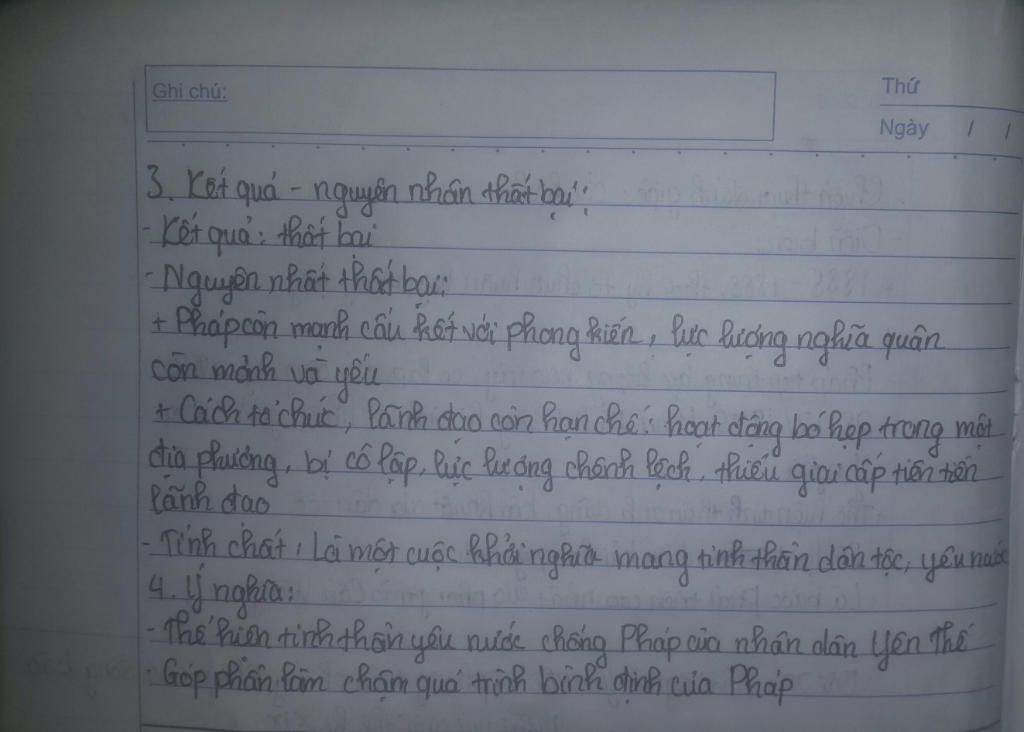 Ghi chú:
Thứ
Ngày / /
3. Kết quả - nguyên nhân thất bại:
- Kết quả: thất bại
- Nguyên nhất thất bại:
+ Pháp còn mạnh cấu kết với phong kiến, lực lượng nghĩa quân
còn mỏnh và yếu
+ Cách tổ chức, lãnh đạo còn hạn chế: hoạt động bó hẹp trong một
địa phương, bị cô lập, lực lượng chênh lệch, thiếu giai cấp tiên tến
lãnh đạo
- Tính chất: Là một cuộc khởi nghĩa mang tinh thần dân tộc, yêu nước
4. Ý nghĩa:
- Thể hiện tinh thần yêu nước chống Pháp của nhân dân Yên Thế
- Góp phần làm chậm quá trình bình định của Pháp